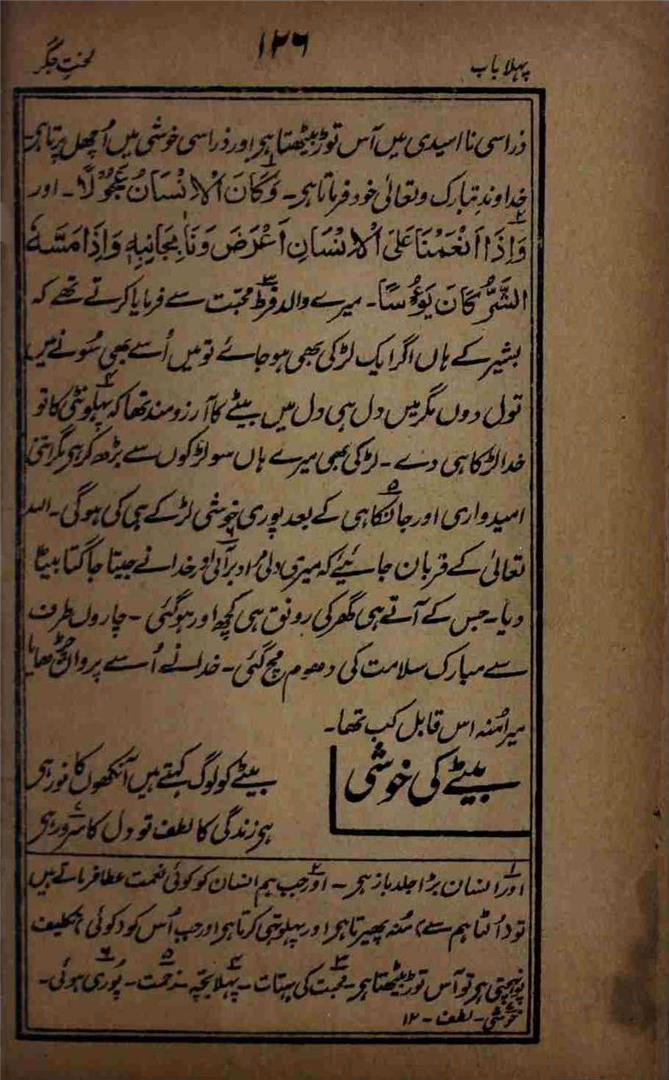 پہلا باب
۱۲۶
لخت جگر
ذرا سی نا امیدی میں آس توڑ بیٹھتا ہی اور ذرا سی خوشی میں اُچھل پڑتا ہی۔
خداوند تبارک و تعالیٰ خود فرماتا ہی۔ وَکَانَ الْاِنْسَانُ عَجُوْلًا۱۔ اور
وَاِذَا اَنْعَمْنَا۲ عَلَی الْاِنْسَانِ اَعْرَضَ وَنَاٰ بِجَانِبِہٖ وَاِذَا مَسَّہُ
الشَّرُّ کَانَ یَؤُسًا۔ میرے والد فرط۳ محبّت سے فرمایا کرتے تھے کہ
بشیر کے ہاں اگر ایک لڑکی بھی ہو جائے تو میں اُسے بھی سُونے میں
تول دوں مگر میں دل ہی دل میں بیٹے کا آرزو مند تھا کہ پہلونٹی۴ کا تو
خدا لڑکا ہی دے۔ لڑکی بھی میرے ہاں سو لڑکوں سے بڑھ کر ہی مگر اتنی
امیدواری اور جانکاہی۵ کے بعد پوری خوشی لڑکے ہی کی ہوگی۔ اللہ
تعالیٰ کے قربان جائیے کہ میری دلی مُراد بر آئی۶ اور خدا نے جیتا جاگتا بیٹا
دیا۔ جس کے آتے ہی گھر کی رونق ہی کچھ اور ہوگئی۔ چاروں طرف
سے مبارک سلامت کی دھوم مچ گئی۔ خدا نے اُسے پروان چڑھایا
میرا مُنہ اس قابل کب تھا۔
بیٹے کی خوشی
بیٹے کو لوگ کہتے ہیں آنکھوں کا نور ہی
ہی زندگی کا لطف تو دل کا سرور۷ ہی
۱ اور انسان بڑا جلد باز ہی۔ ۲ اور جب ہم انسان کو کوئی نعمت عطا فرماتے ہیں
تو (اُلٹا ہم سے) مُنہ پھیرتا ہی اور پہلو تہی کرتا ہی اور جب اُس کو (کوئی) تکلیف
پونہچتی ہی تو آس توڑ بیٹھتا ہی۔ ۳ محبت کی بہتات۔ ۴ پہلا بچّہ۔ ۵ زحمت۔ ۶ پوری ہوئی۔
۷ خوشی۔ لطف۔ ۱۲